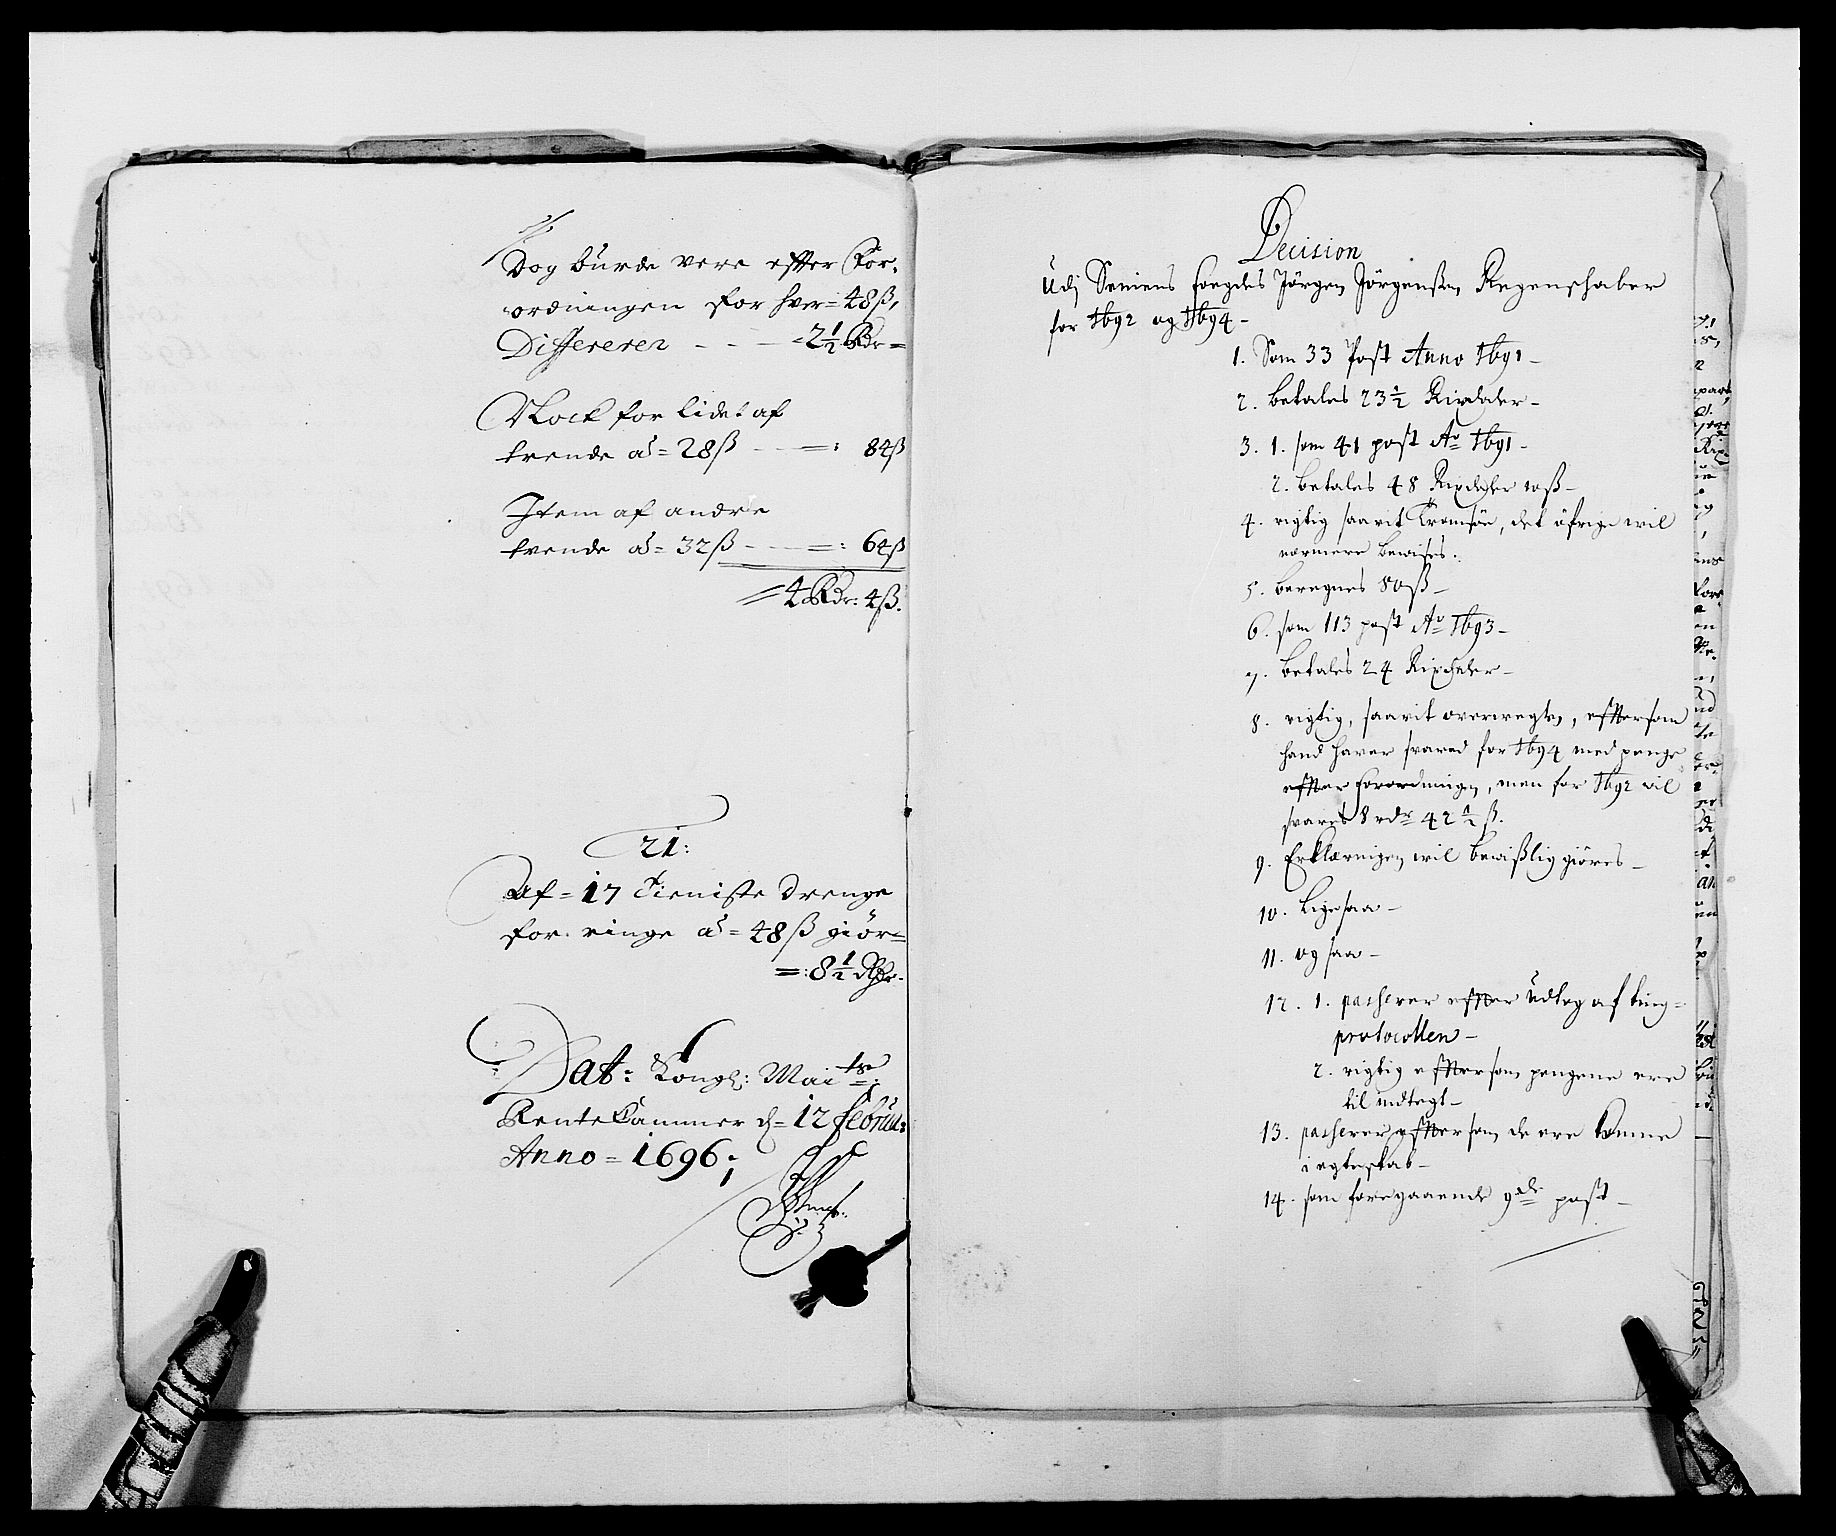 Dog burde vere effter For-
ordningen for hver = 48 ß,
Differerer - - - 2½ Rdr =
Nock for lidet af
trende a = 28 ß - - =: 84 ß
Item af andre
tvende a = 32 ß - - =: 64 ß
= 4 Rdr: 4 ß.
21:
Af = 17 Tieniste Drenge
for ringe a = 48 ß giör =
=: 8½ Rdr.
Dat: Kongl: Mai ts:
Rente Cammer d = 12 Februa:
Anno = 1696;
Decision
Udj Seniens fogdes Jörgen Jörgensen Regenschaber
for 1692 og 1694 -
1. Som 33 Post Anno 1691 -
2. betales 23½ Rixdaler -
3. 1. som 41 post Ao 1691 -
2. betales 48 Rixdaler 10 ß -
4. rigtig saavit Tromsöe, det öfrige wil
nærmere bewises.
5. beregnes 80 ß -
6. som 113 post Ao 1693 -
7. betales 24 Rixdaler -
8. rigtig, saavit overvegten, effttersom
hand haver svared for 1694 med penge
effter forordningen, men for 1692 vil
svares 8 rdr 42½ ß.
9. Erklæringen wil bewißlig giöres -
10. Ligesaa -
11. og saa -
12. 1. passerer effter udtog af ting-
protocollen -
2. rigtig effttersom pengene ere
til indtegt -
13. passerer effttersom de ere komne
i egteskab -
14. som foregaaende 9de post -